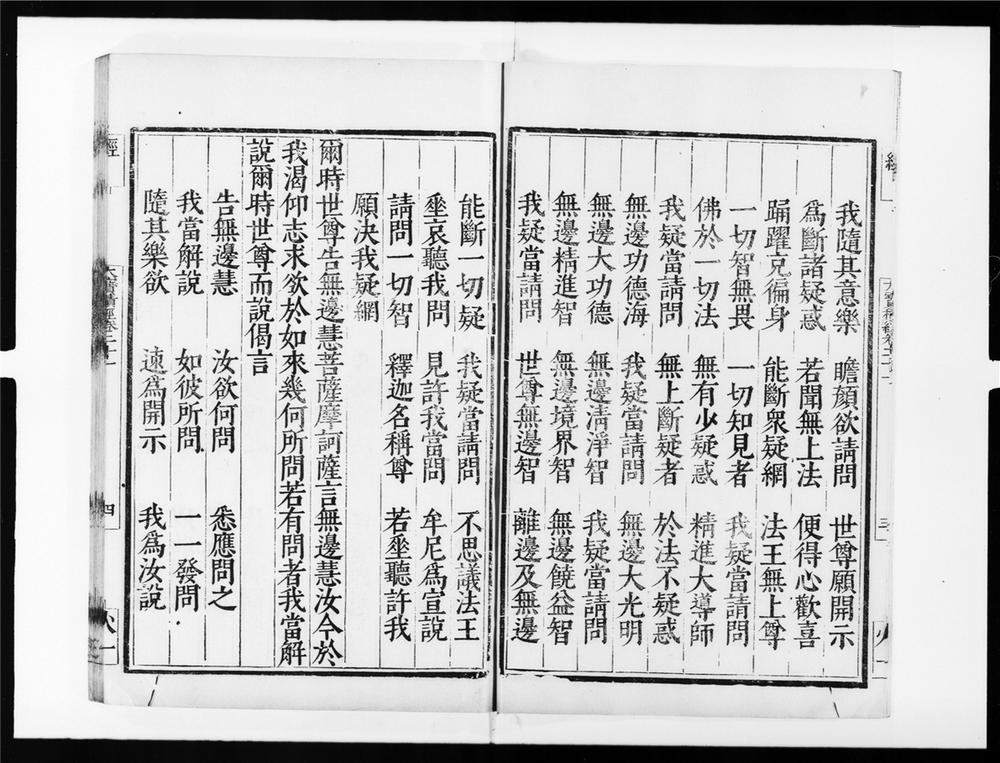 我隨其意樂　瞻顏欲請問　世尊願開示
爲斷諸疑惑　若聞無上法　便得心歡喜
踊躍充徧身　能斷衆疑網　法王無上尊
一切智無畏　一切知見者　我疑當請問
佛於一切法　無有少疑惑　精進大導師
我疑當請問　無上斷疑者　於法不疑惑
無邊功德海　我疑當請問　無邊大光明
無邊大功德　無邊淸淨智　我疑當請問
無邊精進智　無邊境界智　無邊饒益智
我疑當請問　世尊無邊智　離邊及無邊
能斷一切疑　我疑當請問　不思議法王
垂哀聽我問　見許我當問　牟尼爲宣說
請問一切智　釋迦名稱尊　若垂聽許我
願決我疑網
爾時世尊告無邊慧菩薩摩訶薩言無邊慧汝今於
我渴仰志求欲於如來幾何所問若有問者我當解
說爾時世尊而說偈言
告無邊慧　汝欲何問　悉應問之
我當解說　如彼所問　一一發問
隨其樂欲　速爲開示　我爲汝說
經
大寶積經卷二十二
四